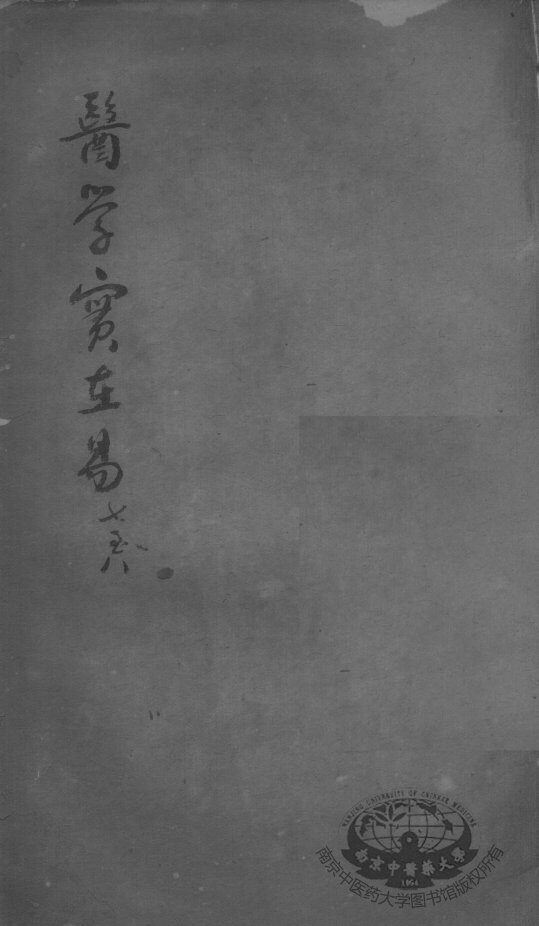 醫学實在易
七至八
NANJING UNIVERSITY OF CHINESE MEDICINE
南京中醫藥大學
1954
南京中医药大学图书馆版权所有